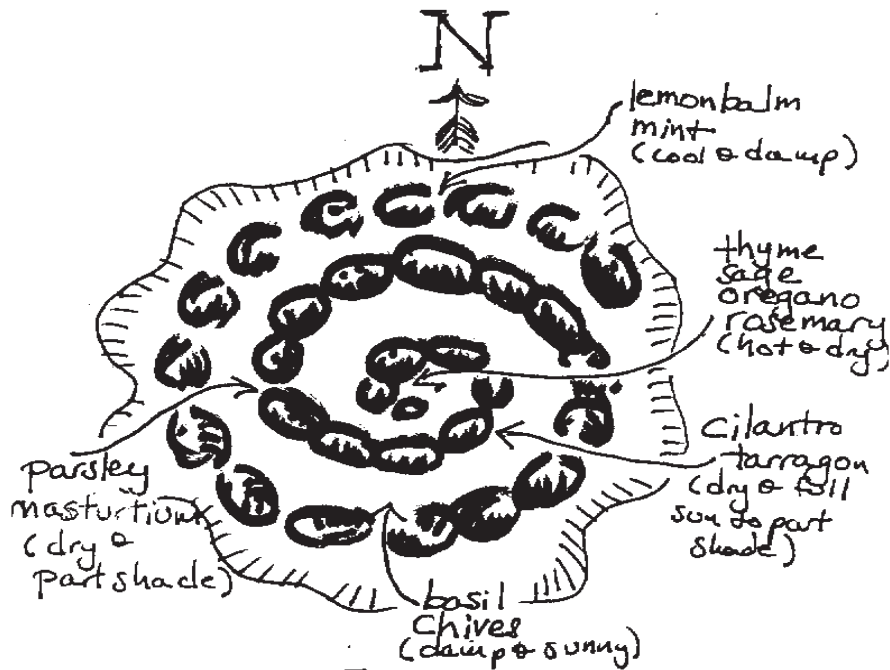 N
lemonbalm
mint
(cool & damp)
thyme
sage
oregano
rosemary
(hot & dry)
cilantro
tarragon
(dry & full
sun to part
shade)
parsley
nasturtium
(dry &
part shade)
basil
Chives
(damp & sunny)